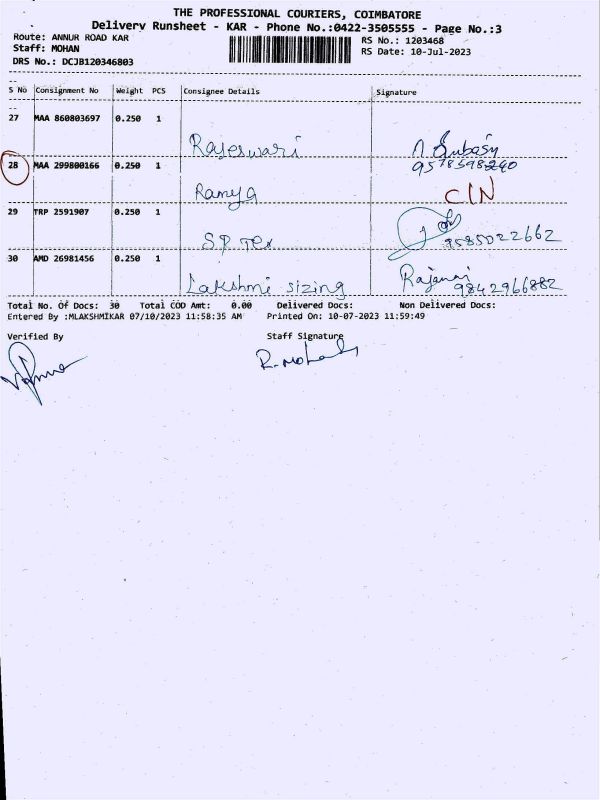 THE PROFESSIONAL COURIERS, COIMBATORE
Delivery Runsheet - KAR - Phone No.:0422-3505555 - Page No.:3
Route: ANNUR ROAD KAR
RS No.: 1203468
Staff: MOHAN
RS Date: 10-Jul-2023
DRS No.: DCJB120346803
S No Consignment No Weight PCS Consignee Details Signature
27 MAA 860803697 0.250 1 Rajeswari
28 MAA 299800166 0.250 1 Ramya CIN
29 TRP 2591907 0.250 1 S.P Tex 9585022662
30 AMD 26981456 0.250 1 Lakshmi sizing 9842966882
Total No. Of Docs: 30 Total COD Amt: 0.00 Delivered Docs: Non Delivered Docs:
Entered By :MLAKSHMIKAR 07/10/2023 11:58:35 AM Printed On: 10-07-2023 11:59:49
Verified By Staff Signature
R. Mohan